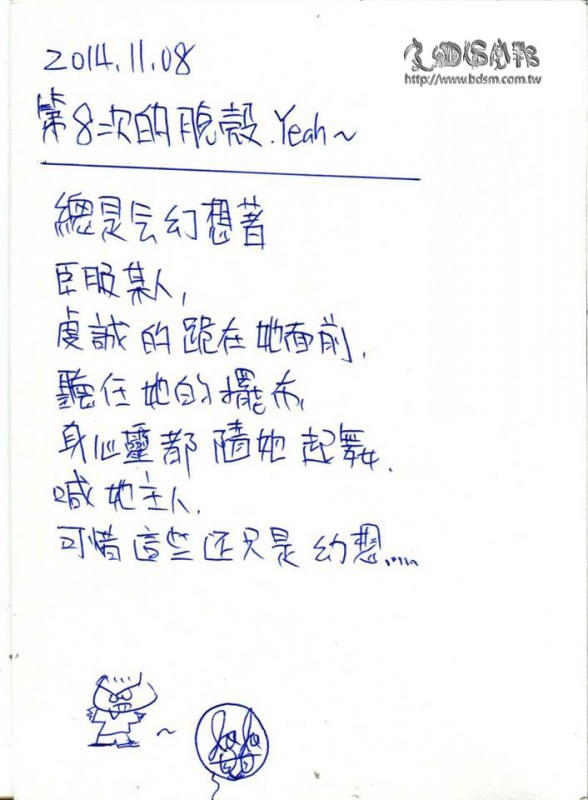 2014.11.08
http://www.bdsm.com.tw
第8次的脫殼.Yeah~
總是会幻想著
臣服某人,
虔誠的跪在她面前,
聽任她的擺布,
身心靈都隨她起舞.
喊她主人.
可惜這些还只是幻想.....